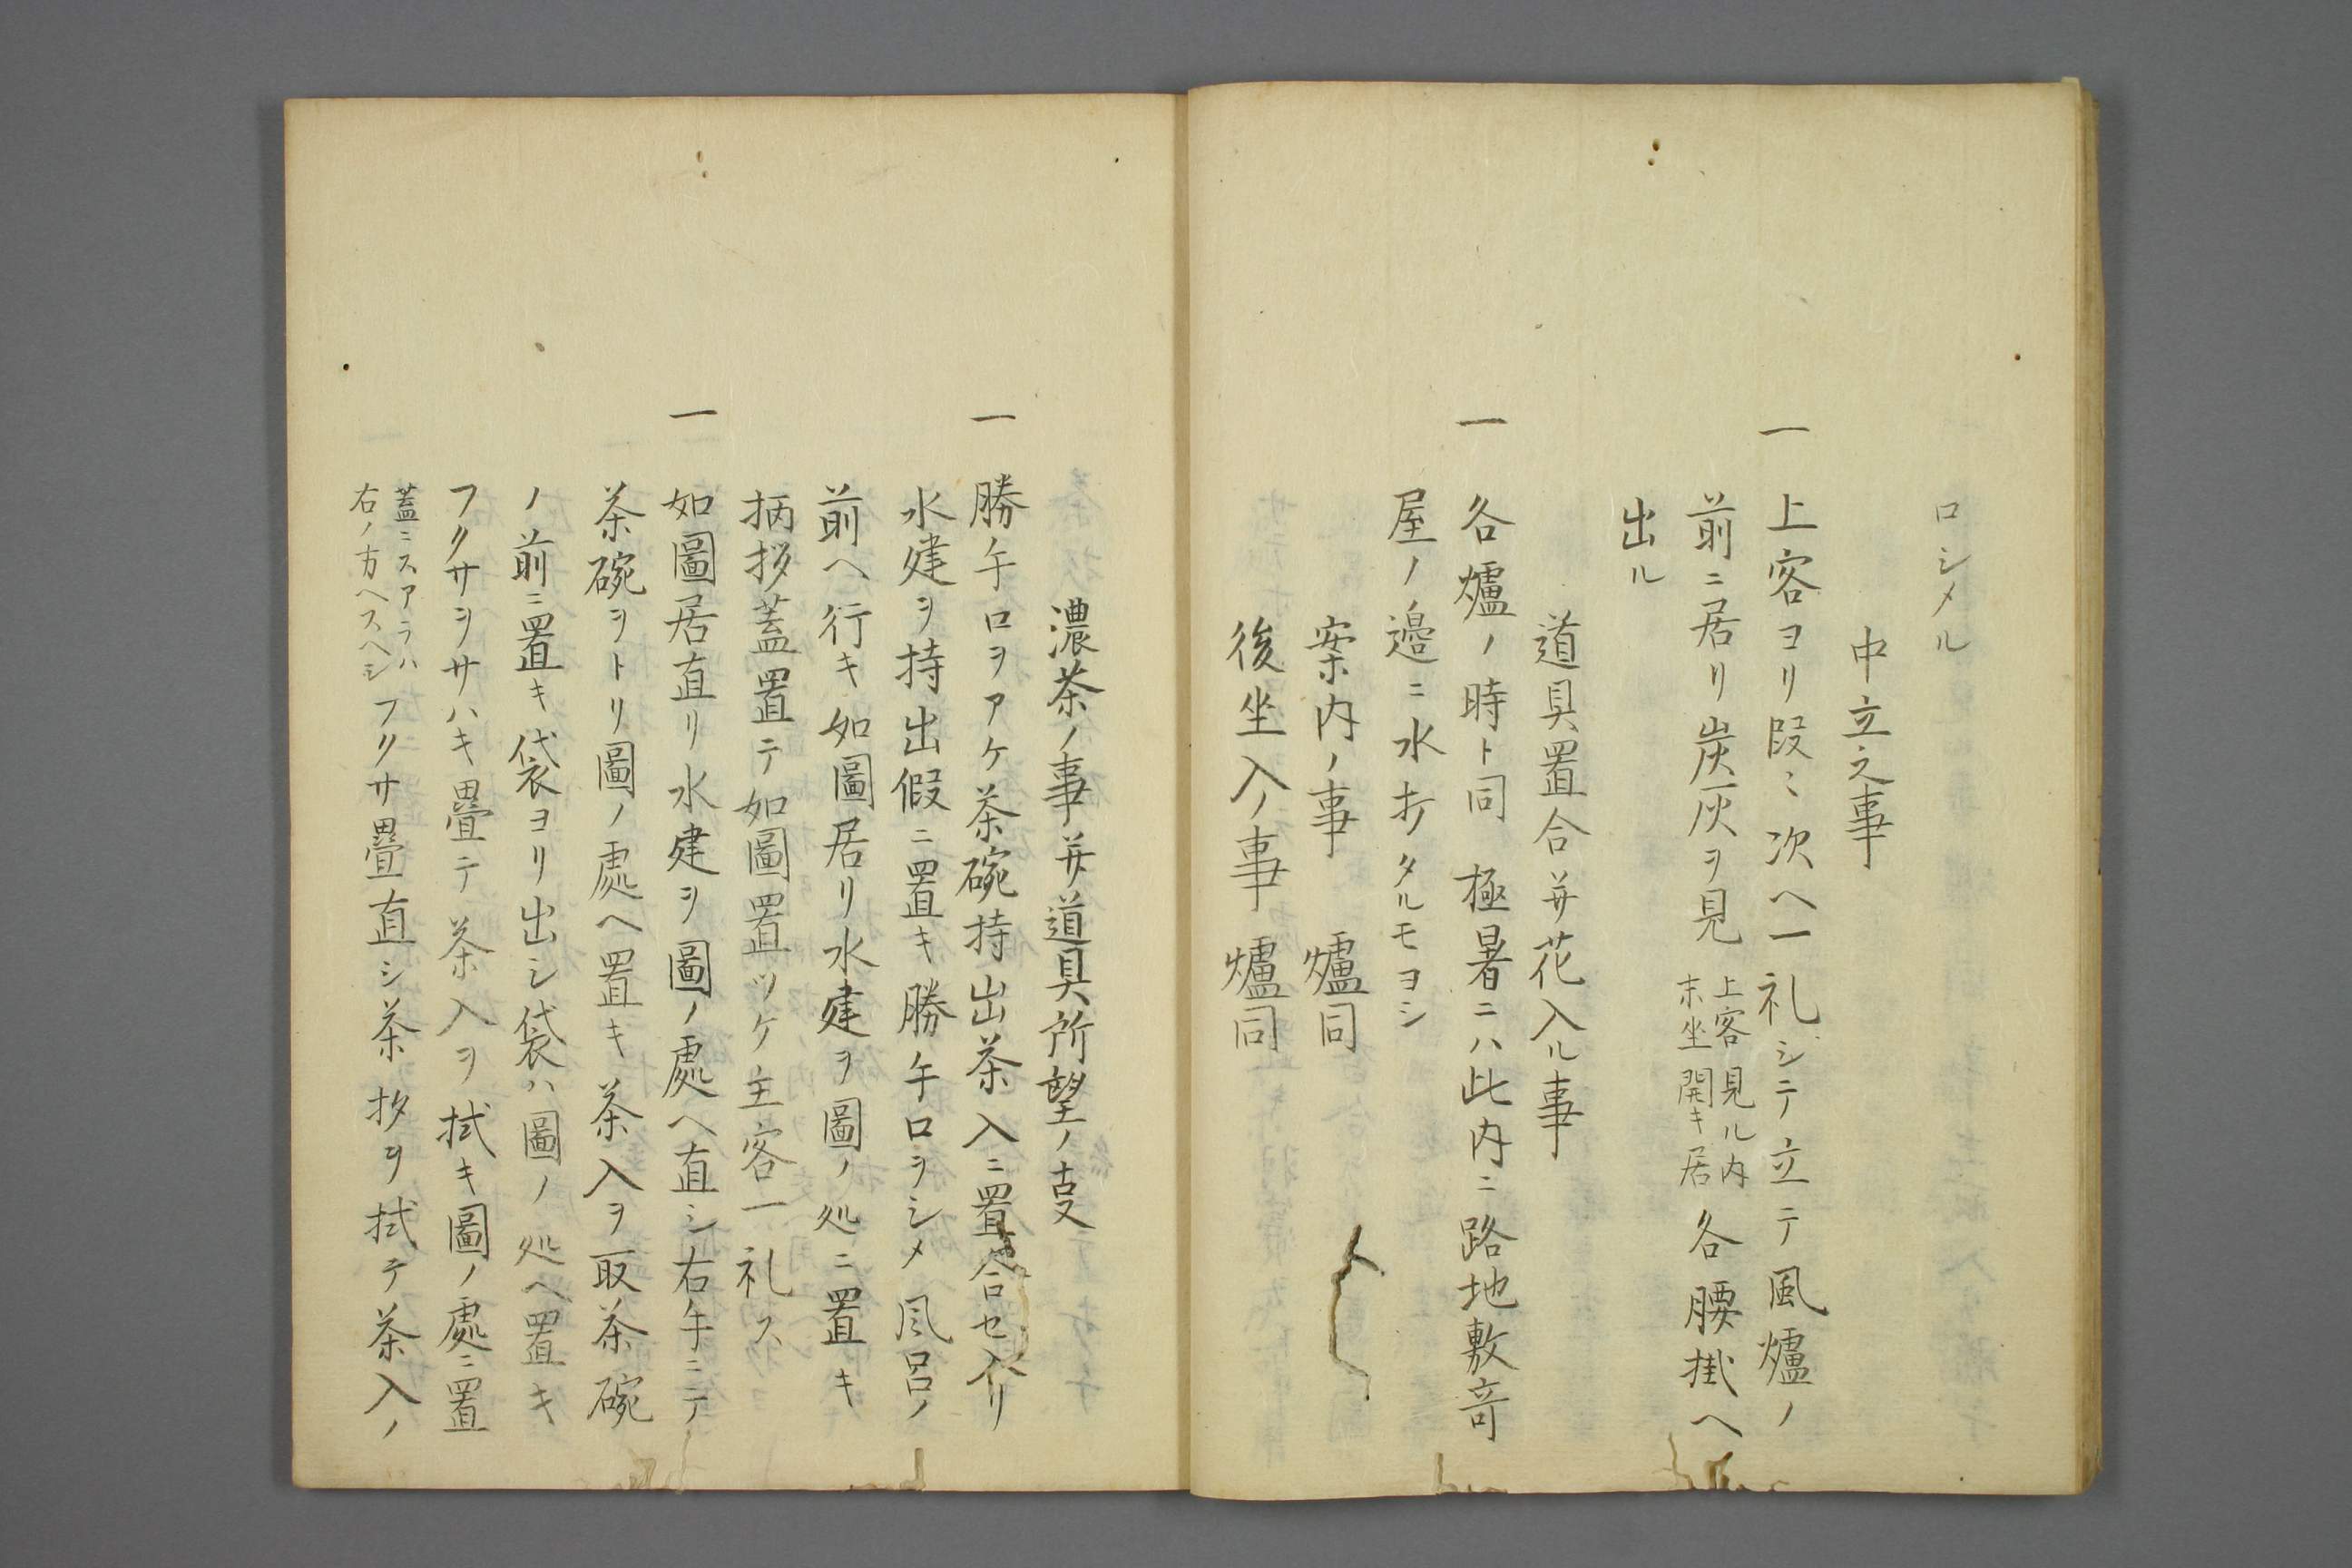 ロシメル
中立之事
一 上客ヨリ段〻次ヘ一礼シテ立テ風爐ノ
前ニ居リ炭灰ヲ見 上客見ル内 末坐開キ居 各腰掛ヘ
出ル
道具置合并花入ル事
一 各爐ノ時ト同 極暑ニハ此内ニ路地敷竒
屋ノ邉ニ水打タルモヨシ
案内ノ事 爐同
後坐入ノ事 爐同
濃茶ノ事并道具所望ノ㕝
一 勝手口ヲアケ茶碗持出茶入ニ置合セ入リ
水建ヲ持出假ニ置キ勝手口ヲシメ風呂ノ
前ヘ行キ如圖居リ水建ヲ圖ノ処ニ置キ
柄杓蓋置テ如圖置ツケ主客一礼ス
一 如圖居直リ水建ヲ圖ノ處ヘ直シ右手ニテ
茶碗ヲトリ圖ノ處ヘ置キ茶入ヲ取茶碗
ノ前ニ置キ袋ヨリ出シ袋ハ圖ノ処ヘ置キ
フクサヲサハキ疊テ茶入ヲ拭キ圖ノ處ニ置
蓋ニスアラハ 右ノ方ヘスヘシ フクサ疊直シ茶杓ヲ拭テ茶入ノ